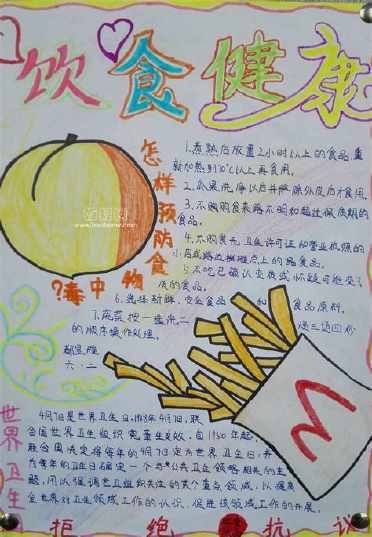 饮食健康
怎样预防食物中毒?
1.煮熟后放置2小时以上的食品,重
新加热到70℃以上再食用。
2.瓜果洗净以后并除外皮后才食用。
3.不购买食来路不明和超过保质期的
食品。
4.不购食无卫生许可证和营业执照的
小店或路边摊点上的食品。
5.不吃已确认变质或怀疑可能变了
质的食品。
6.选择新鲜、安全食品和食品原料。
7.蔬菜按一洗二
的顺序操作处理。
六·二
世界卫生
4月7日是世界卫生日,1948年4月7日,联
合国世界卫生组织宪章生效,自1950年起,
联合国决定将每年的4月7日定为世界卫生日,并
为每年的卫生日确定一个与公共卫生领域相关的主
题,用以强调世卫组织关注的某个重点领域,以提高
全世界对卫生领域工作的认识,促进该领域工作的开展。
拒绝
抗议